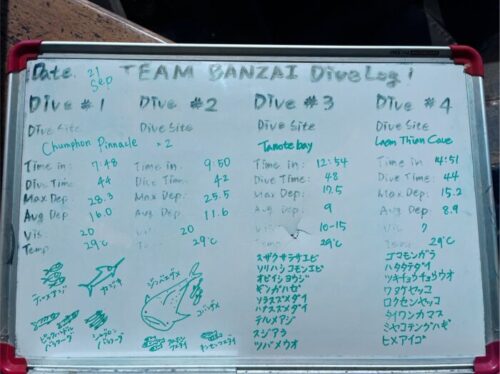 Date. 21 Sep TEAM BANZAI Dive Log!
Dive #1
Dive Site
Chumphon Pinnacle × 2
Time in: 7:48
Dive Time: 44
Max Dep: 28.3
Avg Dep: 16.0
Vis 20
Temp 29°C
カマジキ
Dive #2
Dive Site
Time in: 9:50
Dive Time: 42
Max Dep: 25.5
Avg Dep: 11.6
Vis 20
29°C
ジンベエザメ
コバンザメ
Dive #3
Dive Site
Tanote bay
Time in: 12:54
Dive Time: 48
Max Dep: 17.5
Avg Dep: 9
Vis 10-15
Temp 29°C
スザクサラサエビ
ソリハシコモンエビ
ギンガハゼ
テルメアジ
スジアラ
ツバメウオ
Dive #4
Dive Site
Laem Thian Cave
Time in: 4:51
Dive Time: 44
Max Dep: 15.2
Avg Dep: 8.9
Vis 7
29°C
ゴマモンガラ
ハタタテダイ
ツキチョウチョウウオ
ワヌケヤッコ
ロクセンヤッコ
タイワンカマス
ミヤコテングハギ
ヒメアイゴ